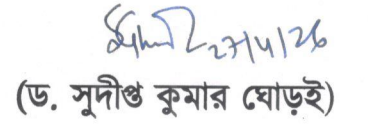 27/4/26
(ড. সুদীপ্ত কুমার ঘোড়ই)